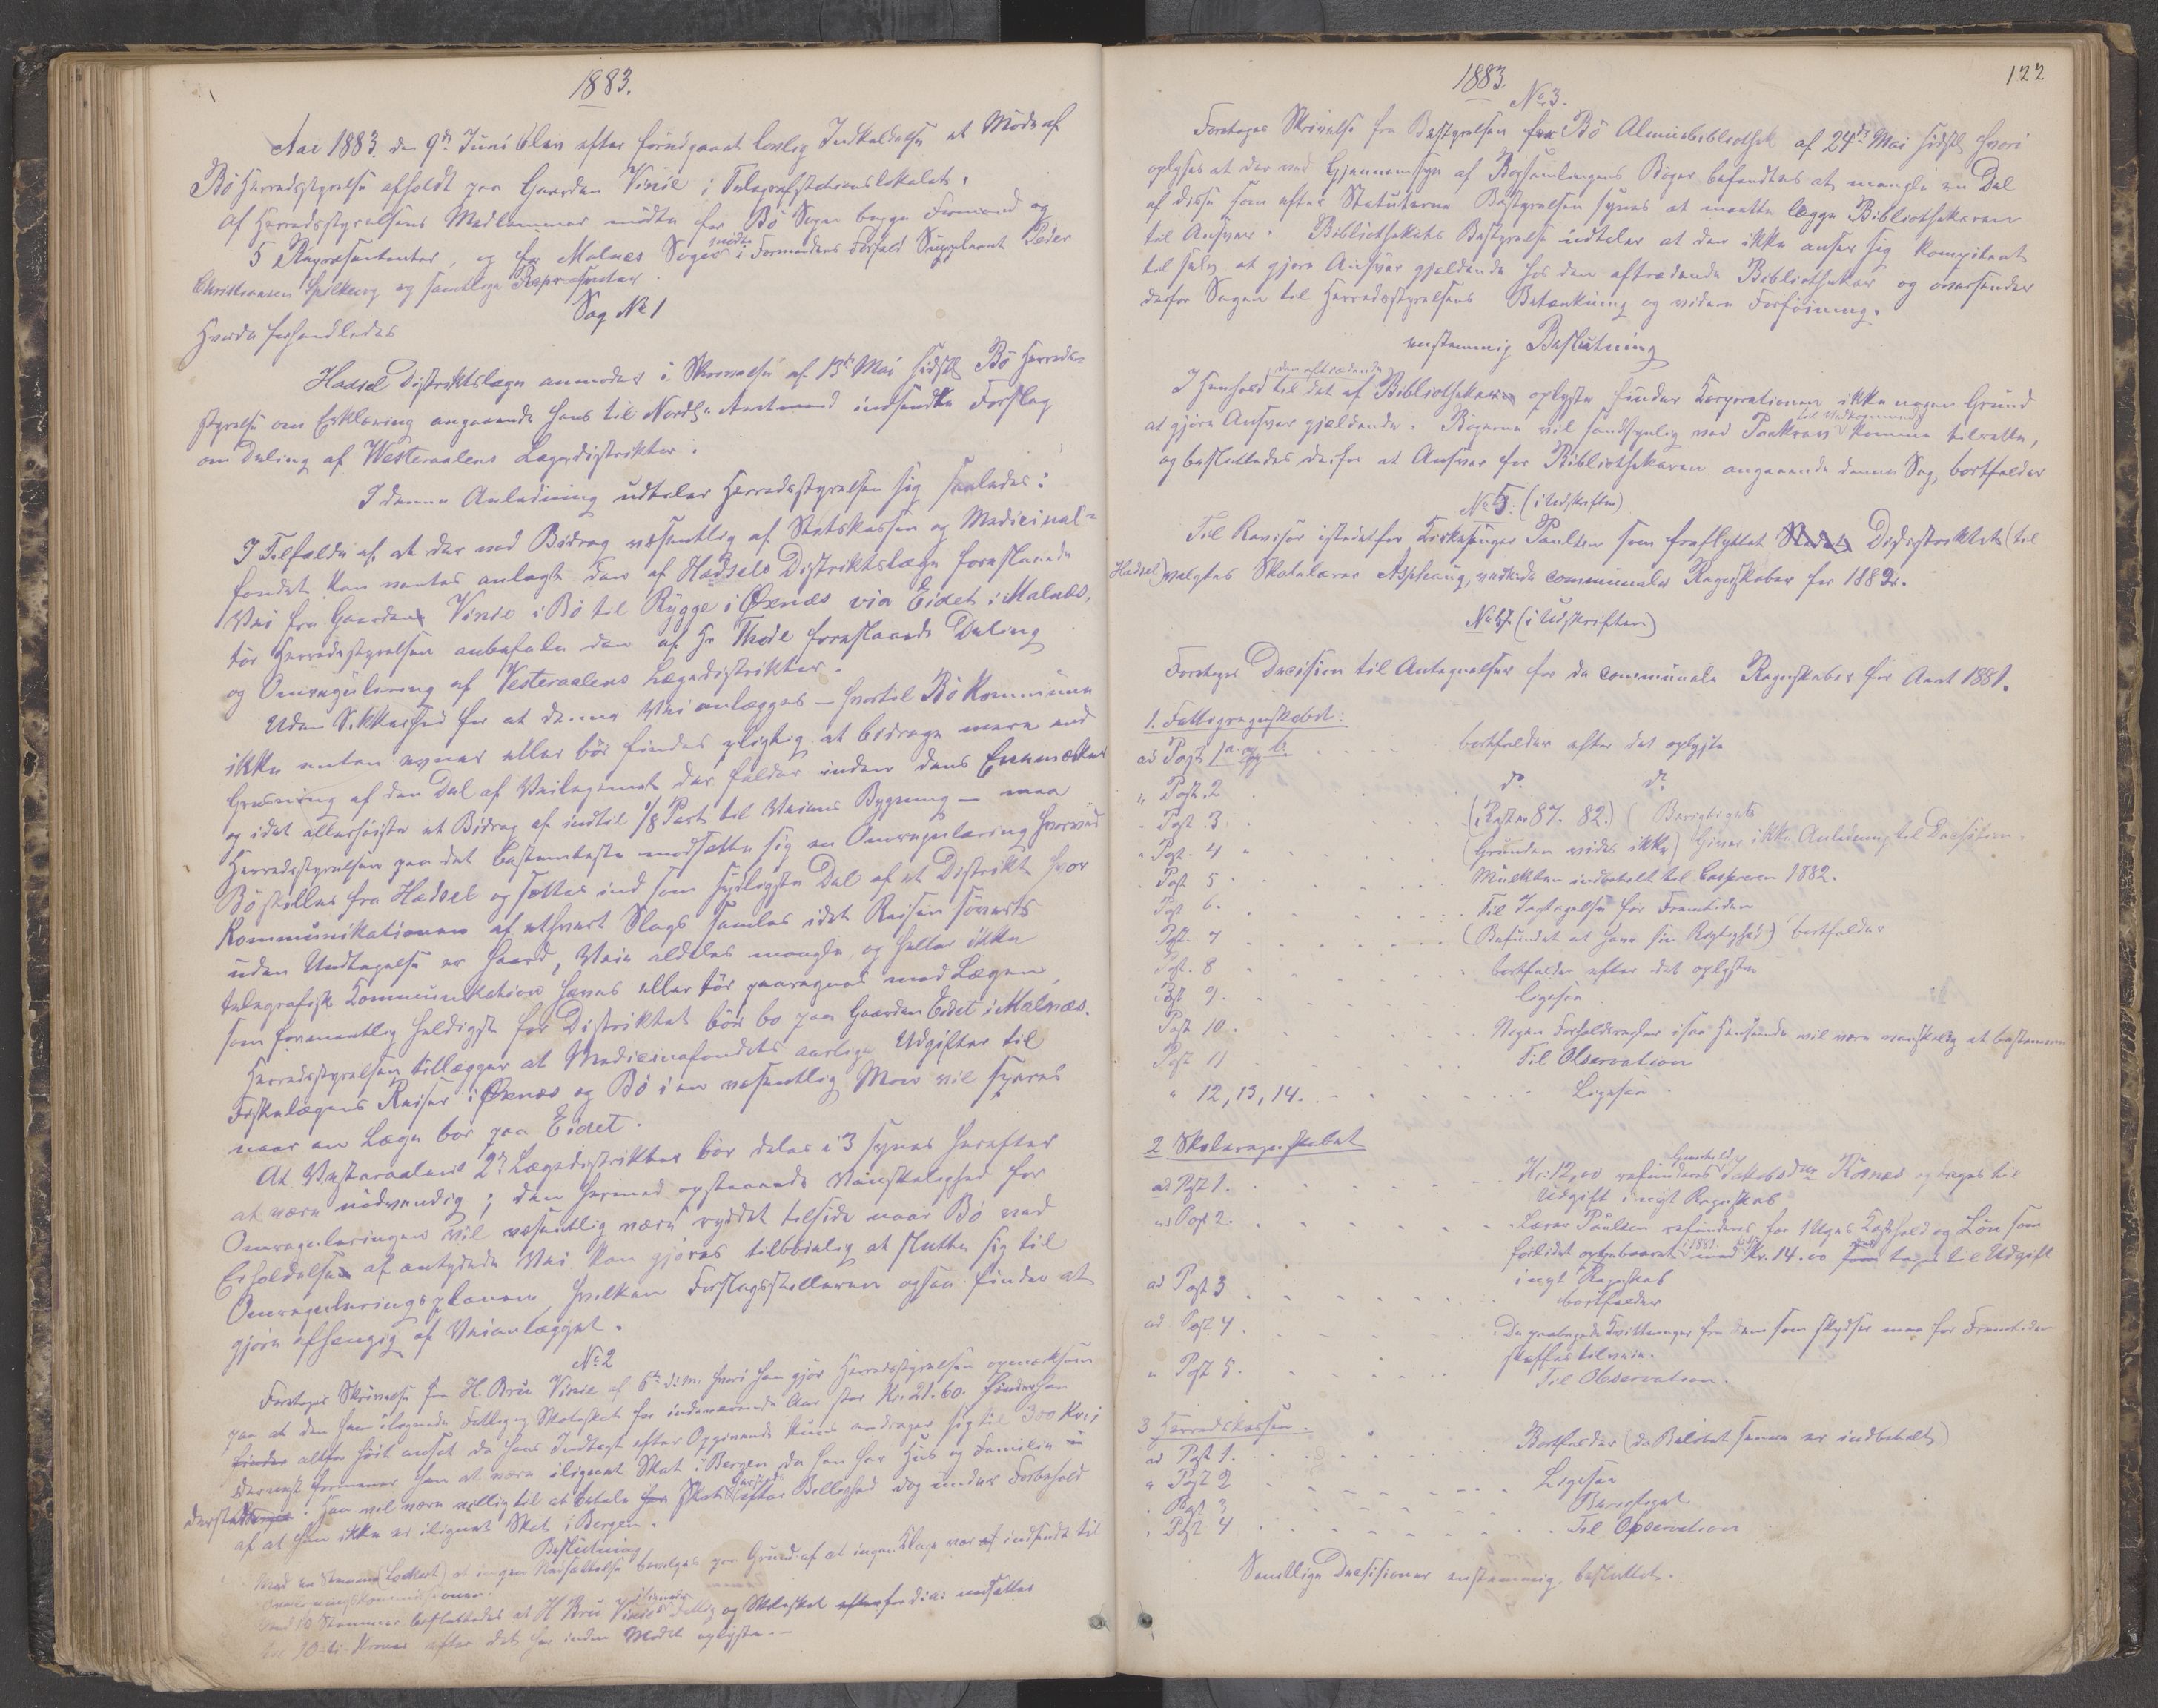 1883.
Aar 1883. den 9de Juni blev efter forudgaaet lovlig Indkaldelse et Möde af
Bö Herredsstyrelse afholdt paa Gaarden Vinie i Telegrafstationslokalet.
Af Herredsstyrelsens Medlemmer mödte for Bö Sogn begge Formænd og
5 Repræsentanter, og for Malnes Sogn mödte i Formandens Forfald Suppleant Peder
Christiansen og samtlige Repræsentanter.
Sag No 1
Hvorda forhandledes
Hadsel Distriktslæge anmoder i Skrivelse af 13de Mai sidstl. Bö Herreds-
styrelse om Erklæring angaaende hans til Nordl. Amtmand indsendte Forslag
om Deling af Westeraalens Lægedistrikter.
I denne Anledning udtaler Herredsstyrelsen sig saaledes:
I Tilfælde af at der ved Bidrag væsentlig af Statskassen og Medicinal-
fondet kan ventes anlagt den af Hadsels Distriktslæge foreslaaede
Vei fra Gaarden Vinie i Bö til Rygge i Öxnæs via Eidet i Malnæs,
tör Herredsstyrelsen anbefale den af Hr Thode foreslaaede Deling
og Omregulering af Vesteraalens Lægedistrikter.
Uden Sikkerhed for at denne Vei anlægges – hvortil Bö Kommune
ikke enten evner eller bör findes pligtig at bidrage mere end
Grusning af den Del af Veilegemet der falder inden dens Enemærker
og idet allerhöieste et Bidrag af indtil 1/8 Part til Veiens Bygning – maa
Herredsstyrelsen paa det bestemteste modsætte sig en Omregulering hvorved
Bö skilles fra Hadsel og sættes ind som sydligste Del af et Distrikt hvor
Kommunikationen af ethvert Slags savnes idet Reisen söværts
uden Undtagelse er haard, Veie aldeles mangle og heller ikke
telegrafisk Kommunikation haves eller tör paaregnes med Lægen,
som formentlig heldigst for Distriktet bör bo paa Gaarden Eidet i Malnæs.
Herredsstyrelsen tillægger at Medicinalfondets aarlige Udgifter til
Fiskelægens Reiser i Öxnæs og Bö i en væsentlig Mon vil spares
naar en Læge bor paa Eidet.
At Vesteraalens 2de Lægedistrikter bör deles i 3 synes herefter
at være nödvendig; den hermed opstaaende Vanskelighed for
Omreguleringen vil væsentlig være ryddet tilside naar Bö ved
Erholdelsen af antydede Vei kan gjöres tilböielig at slutte sig til
Omreguleringsplanen, hvilken Forslagsstilleren ogsaa finder at
gjöre afhængig af Veianlægget.
No 2
Foretoges Skrivelse fra H. Bru Vinie af 6te d.m. hvori han gjör Herredsstyrelsen opmærksom
paa at den ham ilignede Fattig og Skoleskat for indeværende Aar stor Kr. 21.60. finder han
altfor höit ansat da hans Indtægt efter Opgivende kuns andrager sig til 300 Kr.;
dernæst formener han at være ilignet Skat i Bergen da han har Hus og Familie
dersteds. Han vil være villig til at betale Skat efter Billighed dog under Forbehold
af at han ikke er ilignet Skat i Bergen.
Beslutning
Med en Stemme (Lockert) at ingen Nedsættelse bevilges paa Grund af at ingen Klage var indsendt til
Overligningskommissionen.
Med 10 Stemmer besluttedes at H Bru Vinie ilignede Fattig og Skoleskat for d.A. nedsættes
til 10 – ti – Kroner efter det her inden Mödet oplyste.
1883.
122
No 3.
Foretoges Skrivelse fra Bestyrelsen for Bö Almuebibliothek af 24de Mai sidstl. hvori
oplyses at der ved Gjennemsyn af Bogsamlingens Böger befandtes at mangle en Del
af disse som efter Statuterne Bestyrelsen synes at maatte lægge Bibliothekaren
til Ansvar. Bibliothekets Bestyrelse udtaler at den ikke anser sig kompetent
til selv at gjöre Ansvar gjældende hos den aftrædende Bibliothekar og oversender
derfor Sagen til Herredsstyrelsens Betænkning og videre Forföining.
enstemmig Beslutning
I Henhold til det af den aftrædende Bibliothekar oplyste finder Korporationen ikke nogen Grund
at gjöre Ansvar gjældende. Bögerne vil sandsynlig ved Paakrav til Vedkommende komme tilrette,
og besluttedes derfor at Ansvar for Bibliothekaren angaaende denne Sag, bortfalder
No 5. (i Udskriften)
Til Revisor istedetfor Kirkesanger Paulsen som fraflyttet Distriktet (til
Hadsel) valgtes Skolelærer Asphaug, communale Regnskaber for 1882.
No 4. (i Udskriften)
Foretoges Decision til Antegnelser for de communale Regnskaber for Aaret 1881.
1. Fattigregnskabet:
ad Post 1 a. og b. bortfalder efter det oplyste
" Post. 2 do do
- Post. 3 Berigtiget
" Post. 4 (Grunden vides ikke) Giver ikke Anledning til Decision.
- Post 5 Mulkten indbetalt til Casserern 1882.
Post 6. Til Iagttagelse for Fremtiden
Post. 7 (Befundet at have sin Rigtighed) bortfalder
Post. 8 bortfalder efter det oplyste
Post 9. ligesaa
Post 10. Nogen Forholdsregler i saa Henseende vil være vanskelig at bestemme
Post 11 Til Observation
" 12, 13, 14. Ligesaa
2 Skoleregnskabet
ad Post 1. Kr. 12,00 refunderes Jakobsen og tages til
Udgift i nyt Regnskab
ad Post 2. Lærer Paulsen refunderes for 1 Uges Kosthold og Lön som
forlidet oppebaaret i 1881. Kr. 14.00 tages til Udgift
i nyt Regnskab
ad Post 3 bortfalder
ad Post. 4. De paabegede Kvitteringer fra dem som skydser maa for Fremtiden
skaffes tilveie.
" Post 5. Til Observation.
3 Herredskassen.
ad Post 1. Bortfalder (da Belöbet senere er indbetalt)
" Post 2 Ligesaa
" Post. 3 Berigtiget
" Post 4 Til Observation
Samtlige Decisioner enstemmig besluttet.